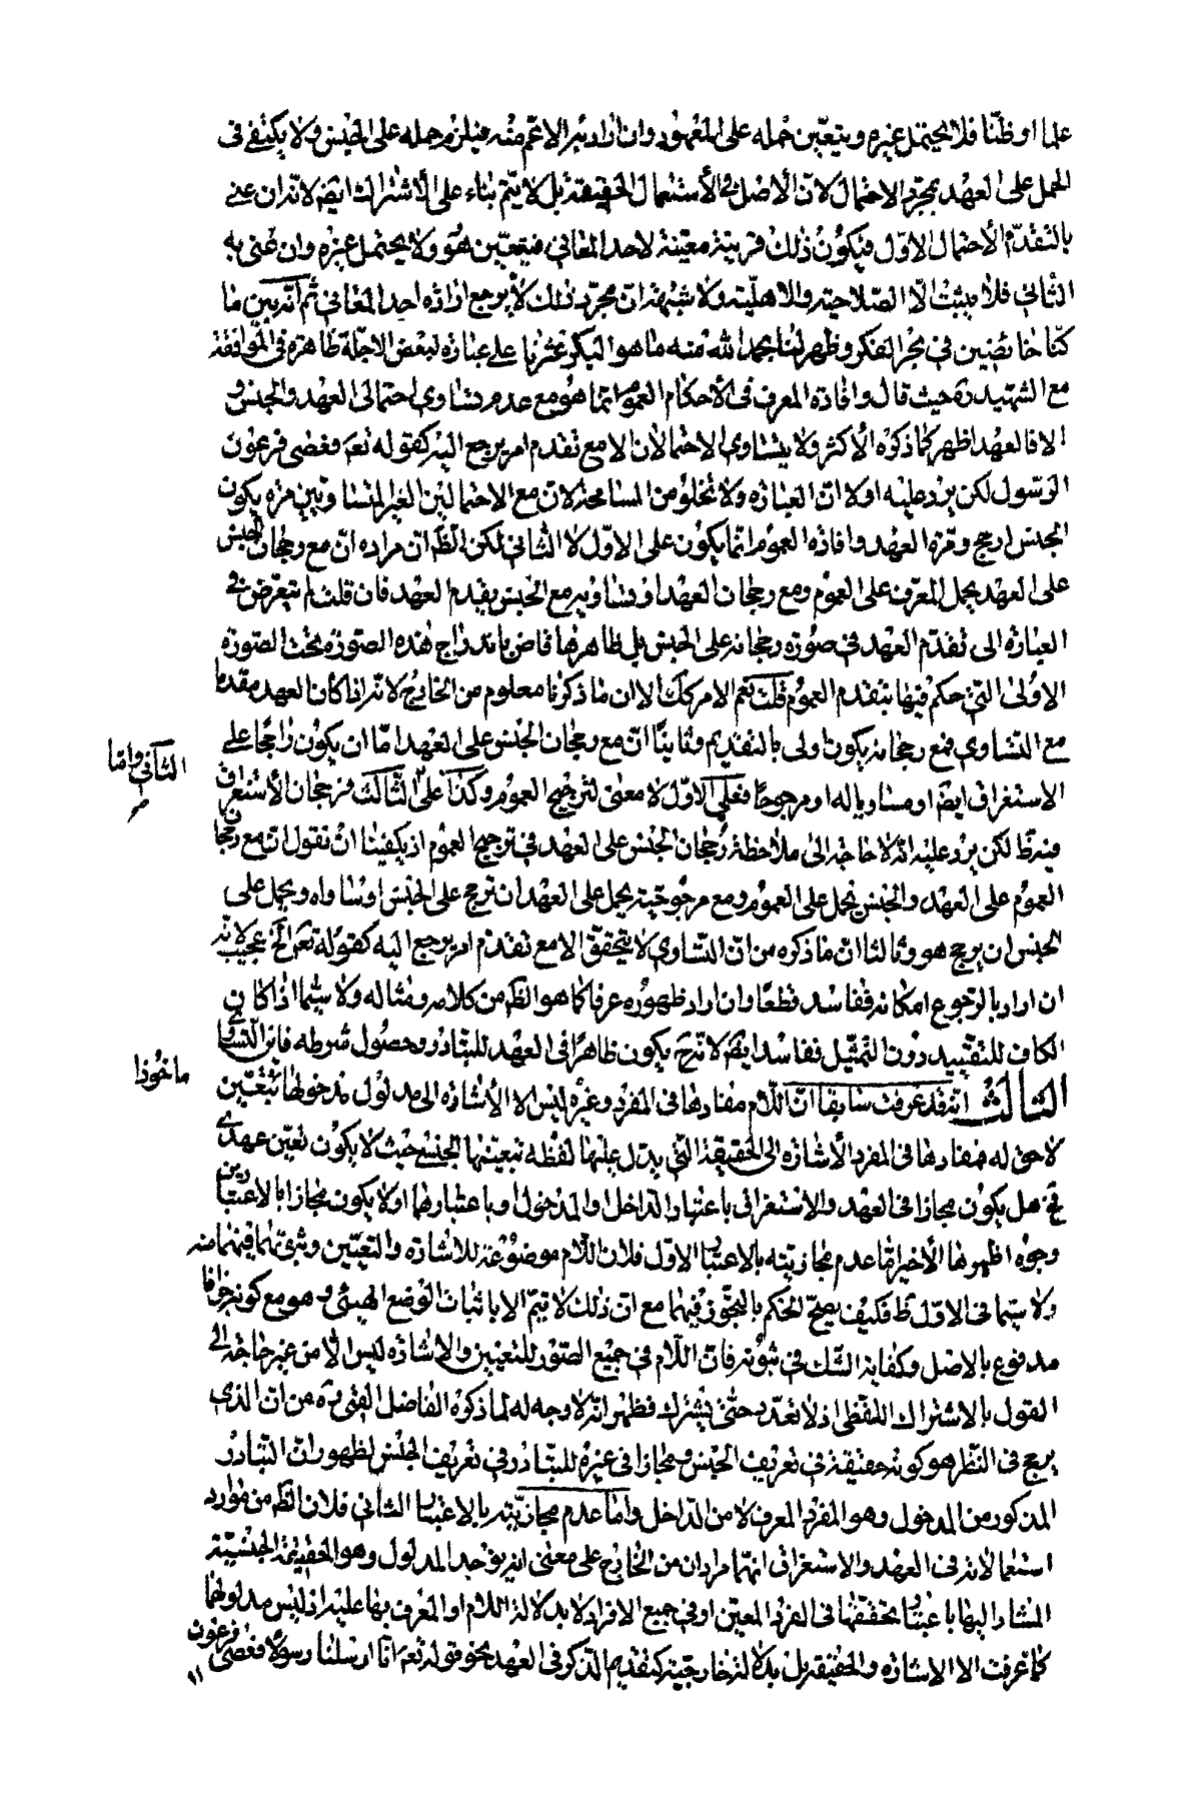 علما او ظنّا فلا يحتمل غيره ويتعيّن حمله على المعهود وان اراد به الاعمّ منه فيلزم حمله على الجنس ولا يكتفى فى
الحمل على العهد بمجرّد الاحتمال لانّ الاصل فى الاستعمال الحقيقة بل لا يتمّ بناء على الاشتراك ايضا لانّه ان عنى
بالتقدّم الاحتمال الاوّل فيكون ذلك قرينة معيّنة لاحد المعانى فيتعيّن هو ولا يحتمل غيره وان عنى به
الثّانى فلا يثبت الّا الصّلاحيّة والاهليّة ولا شبهة انّ مجرّد ذلك لا يرجع ارادة احد المعانى ثم انّه بين ما
كنّا خائضين فى بحر الفكر وظهر لنا بحمد الله منه ما هو البكر عثرنا على عبارة لبعض الاجلّة ظاهرة فى الموافقة
مع الشهيد ره حيث قال وافادة المعرف فى الاحكام العموم انّما هو مع عدم تساوى احتمالى العهد والجنس و
الا فالعهد اظهر كما ذكره الاكثر ولا يتساوى الاحتمالان الا مع تقدم امر يرجع اليه كقوله تعم فعصى فرعون
الرسول لكن يرد عليه اولا انّ العبارة ولا تخلو من المسامحة لانّ مع الاحتمالين الغير المتساويين مرة يكون
الجنس ارجح ومرة العهد وافادة العموم انّما يكون على الاوّل لا الثّانى لكن الظّ انّ مراده انّ مع رجحان الجنس
على العهد يحمل المعرّف على العموم ومع رجحان العهد او تساويه مع الجنس يقدم العهد فان قلت لم يتعرّض فى
العبارة الى تقدّم العهد فى صورة رجحانه على الجنس بل ظاهرها قاض باندراج هذه الصّورة تحت الصّورة
الاولى التى حكم فيها بتقدم العموم قلت نعم الامر كك الا ان ما ذكرنا معلوم من الخارج لانّه اذا كان العهد مقدما
مع التساوى فمع رجحانه يكون اولى بالتقديم وثانيًا انّ مع رجحان الجنس على العهد امّا ان يكون راجحًا على
الاستغراق ايضا او مساويا له او مرجوحًا فعلى الاوّل لا معنى لترجيح العموم وكذا على الثّالث فرجحان الاستغراق
الثانى وامّا
فيه ظ لكن يرد عليه انّه لا حاجة الى ملاحظة رجحان الجنس على العهد فى ترجيح العموم اذ يكفينا ان نقول انّ مع رجحان
العموم على العهد والجنس يحمل على العموم ومع مرجوحيّته يحمل على العهد ان ترجح على الجنس او ساواه ويحمل على
الجنس ان يرجح هو وثالثا انّ ما ذكره من انّ التّساوى لا يتحقّق الا مع تقدم امر يرجع اليه كقوله تعم الخ عجيب لانّه
ان اراد بالرجوع امكانه ففاسد قطعًا وان اراد ظهوره عرفا كما هو الظّ من كلامه ومثاله ولا سيّما اذا كان
الكاف للتقييد دون التّمثيل ففاسد ايضا لانّه ح يكون ظاهرًا فى العهد للتّبادر وحصول شرطه فاين التساوى
الثالث انّه قد عرفت سابقا انّ اللّام مفادها فى المفرد وغيره ليس الا الاشارة الى مدلول مدخولها بتعيّن
ماخوذا
لاحق له فمفادها فى المفرد الاشارة الى الحقيقة التى يدلّ عليها لفظه بتعيّنها الجنسى حيث لا يكون تعيّن عهدى
فح هل يكون مجازا فى العهد والاستغراق باعتبار الدّاخل والمدخول او باعتبارهما او لا يكون مجازا بالاعتبارين
وجوه اظهرها الاخير امّا عدم مجازيّته بالاعتبار الاوّل فلان اللّام موضوعة للاشارة والتعيّين وشئ منهما فيهما منه
ولا سيّما فى الاوّل ظ فكيف يصحّ الحكم بالتجوّز فيهما مع انّ ذلك لا يتمّ الا باثبات الوضع الهيئى وهو مع كونه خرافا
مدفوع بالاصل وكفاية الشّك فى ثبوته فانّ اللّام فى جميع الصّور للتعيين والاشارة ليس الّا من غير حاجة الى
القول بالاشتراك اللفظى اذ لا تعدّد حتّى يشترك فظهر انّه لا وجه له لما ذكره الفاضل القمى ره من انّ الذى
يرجح فى النّظر هو كونه حقيقة فى تعريف الجنس ومجازا فى غيره للتّبادر فى تعريف الجنس لظهور انّ التّبادر
المذكور من المدخول وهو المفرد المعرف لا من الدّاخل وامّا عدم مجازيّته بالاعتبار الثانى فلان الظّ من موارد
استعمالاته فى العهد والاستغراق انّهما مرادان من الخارج على معنى انّه يوخد المدلول وهو الحقيقة الجنسيّة
المشار اليها باعتبار تحقّقها فى الفرد المعيّن او فى جميع الافراد لا بدلالة اللام او المعرف بها عليه اذ ليس مدلولها
كما عرفت الا الاشارة والحقيقة بل بدلالة خارجيّة كتقديم الذّكر فى العهد نحو قوله تعم انّا ارسلنا رسولًا فعصى فرعون